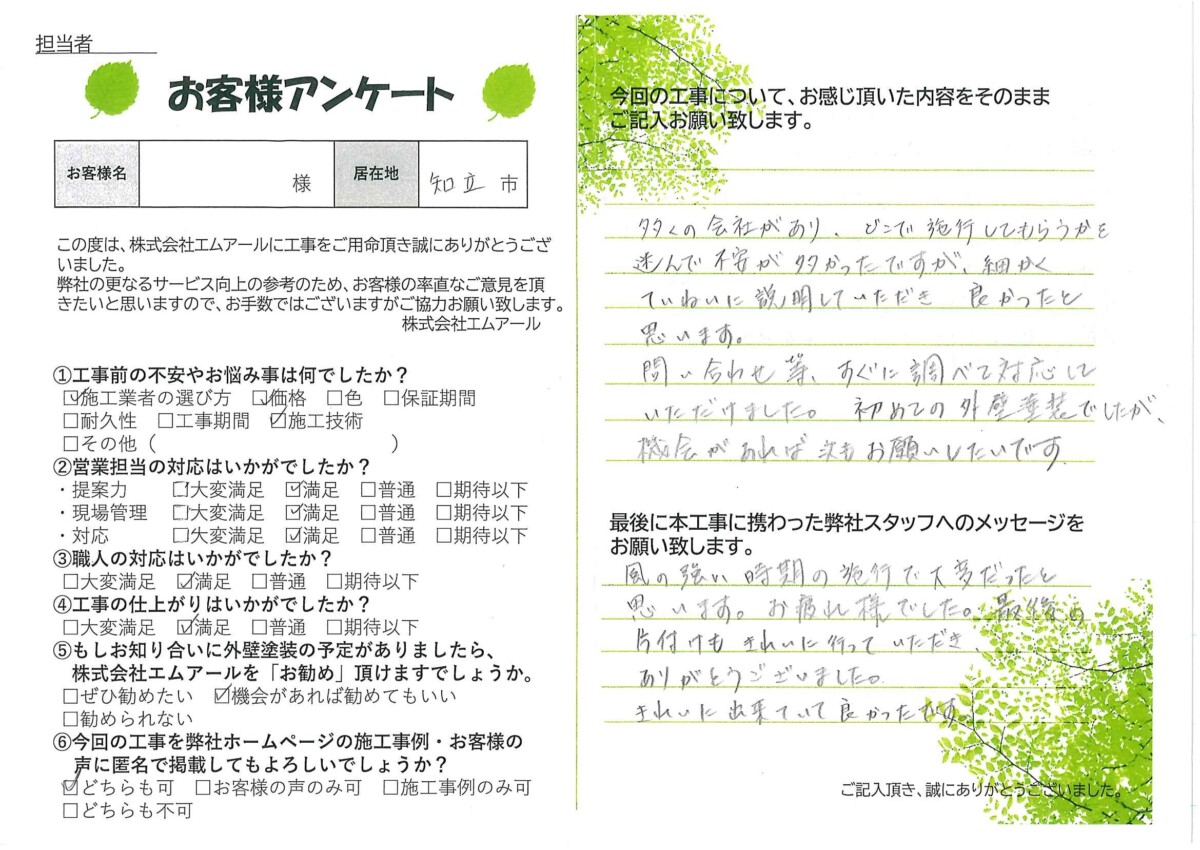 担当者
お客様アンケート
お客様名 様 居在地 知立 市
この度は、株式会社エムアールに工事をご用命頂き誠にありがとうござ
いました。
弊社の更なるサービス向上の参考のため、お客様の率直なご意見を頂
きたいと思いますので、お手数ではございますがご協力お願い致します。
株式会社エムアール
①工事前の不安やお悩み事は何でしたか？
☑施工業者の選び方 ☑価格 □色 □保証期間
□耐久性 □工事期間 ☑施工技術
□その他（ ）
②営業担当の対応はいかがでしたか？
・提案力 □大変満足 ☑満足 □普通 □期待以下
・現場管理 □大変満足 ☑満足 □普通 □期待以下
・対応 □大変満足 ☑満足 □普通 □期待以下
③職人の対応はいかがでしたか？
□大変満足 ☑満足 □普通 □期待以下
④工事の仕上がりはいかがでしたか？
□大変満足 ☑満足 □普通 □期待以下
⑤もしお知り合いに外壁塗装の予定がありましたら、
株式会社エムアールを「お勧め」頂けますでしょうか。
□ぜひ勧めたい ☑機会があれば勧めてもいい
□勧められない
⑥今回の工事を弊社ホームページの施工事例・お客様の
声に匿名で掲載してもよろしいでしょうか？
☑どちらも可 □お客様の声のみ可 □施工事例のみ可
□どちらも不可
今回の工事について、お感じ頂いた内容をそのまま
ご記入お願い致します。
多くの会社があり、どこで施行してもらうかを
迷んで不安が多かったですが、細かく
ていねいに説明していただき 良かったと
思います。
問い合わせ等、すぐに調べて対応して
いただけました。 初めての外壁塗装でしたが、
機会があれば次もお願いしたいです。
最後に本工事に携わった弊社スタッフへのメッセージを
お願い致します。
風の強い時期の施行で大変だったと
思います。お疲れ様でした。最後の
片付けもきれいに行っていただき、
ありがとうございました。
きれいに出来ていて良かったです。
ご記入頂き、誠にありがとうございました。